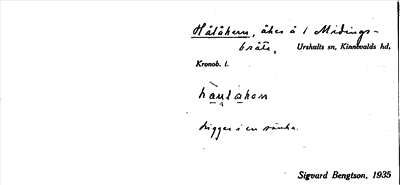 Håtåkern, åker å 1 Midings-
bråte. Urshults sn, Kinnevalds hd,
Kronob. l.
Ligger i en sänka.
Sigvard Bengtson, 1935